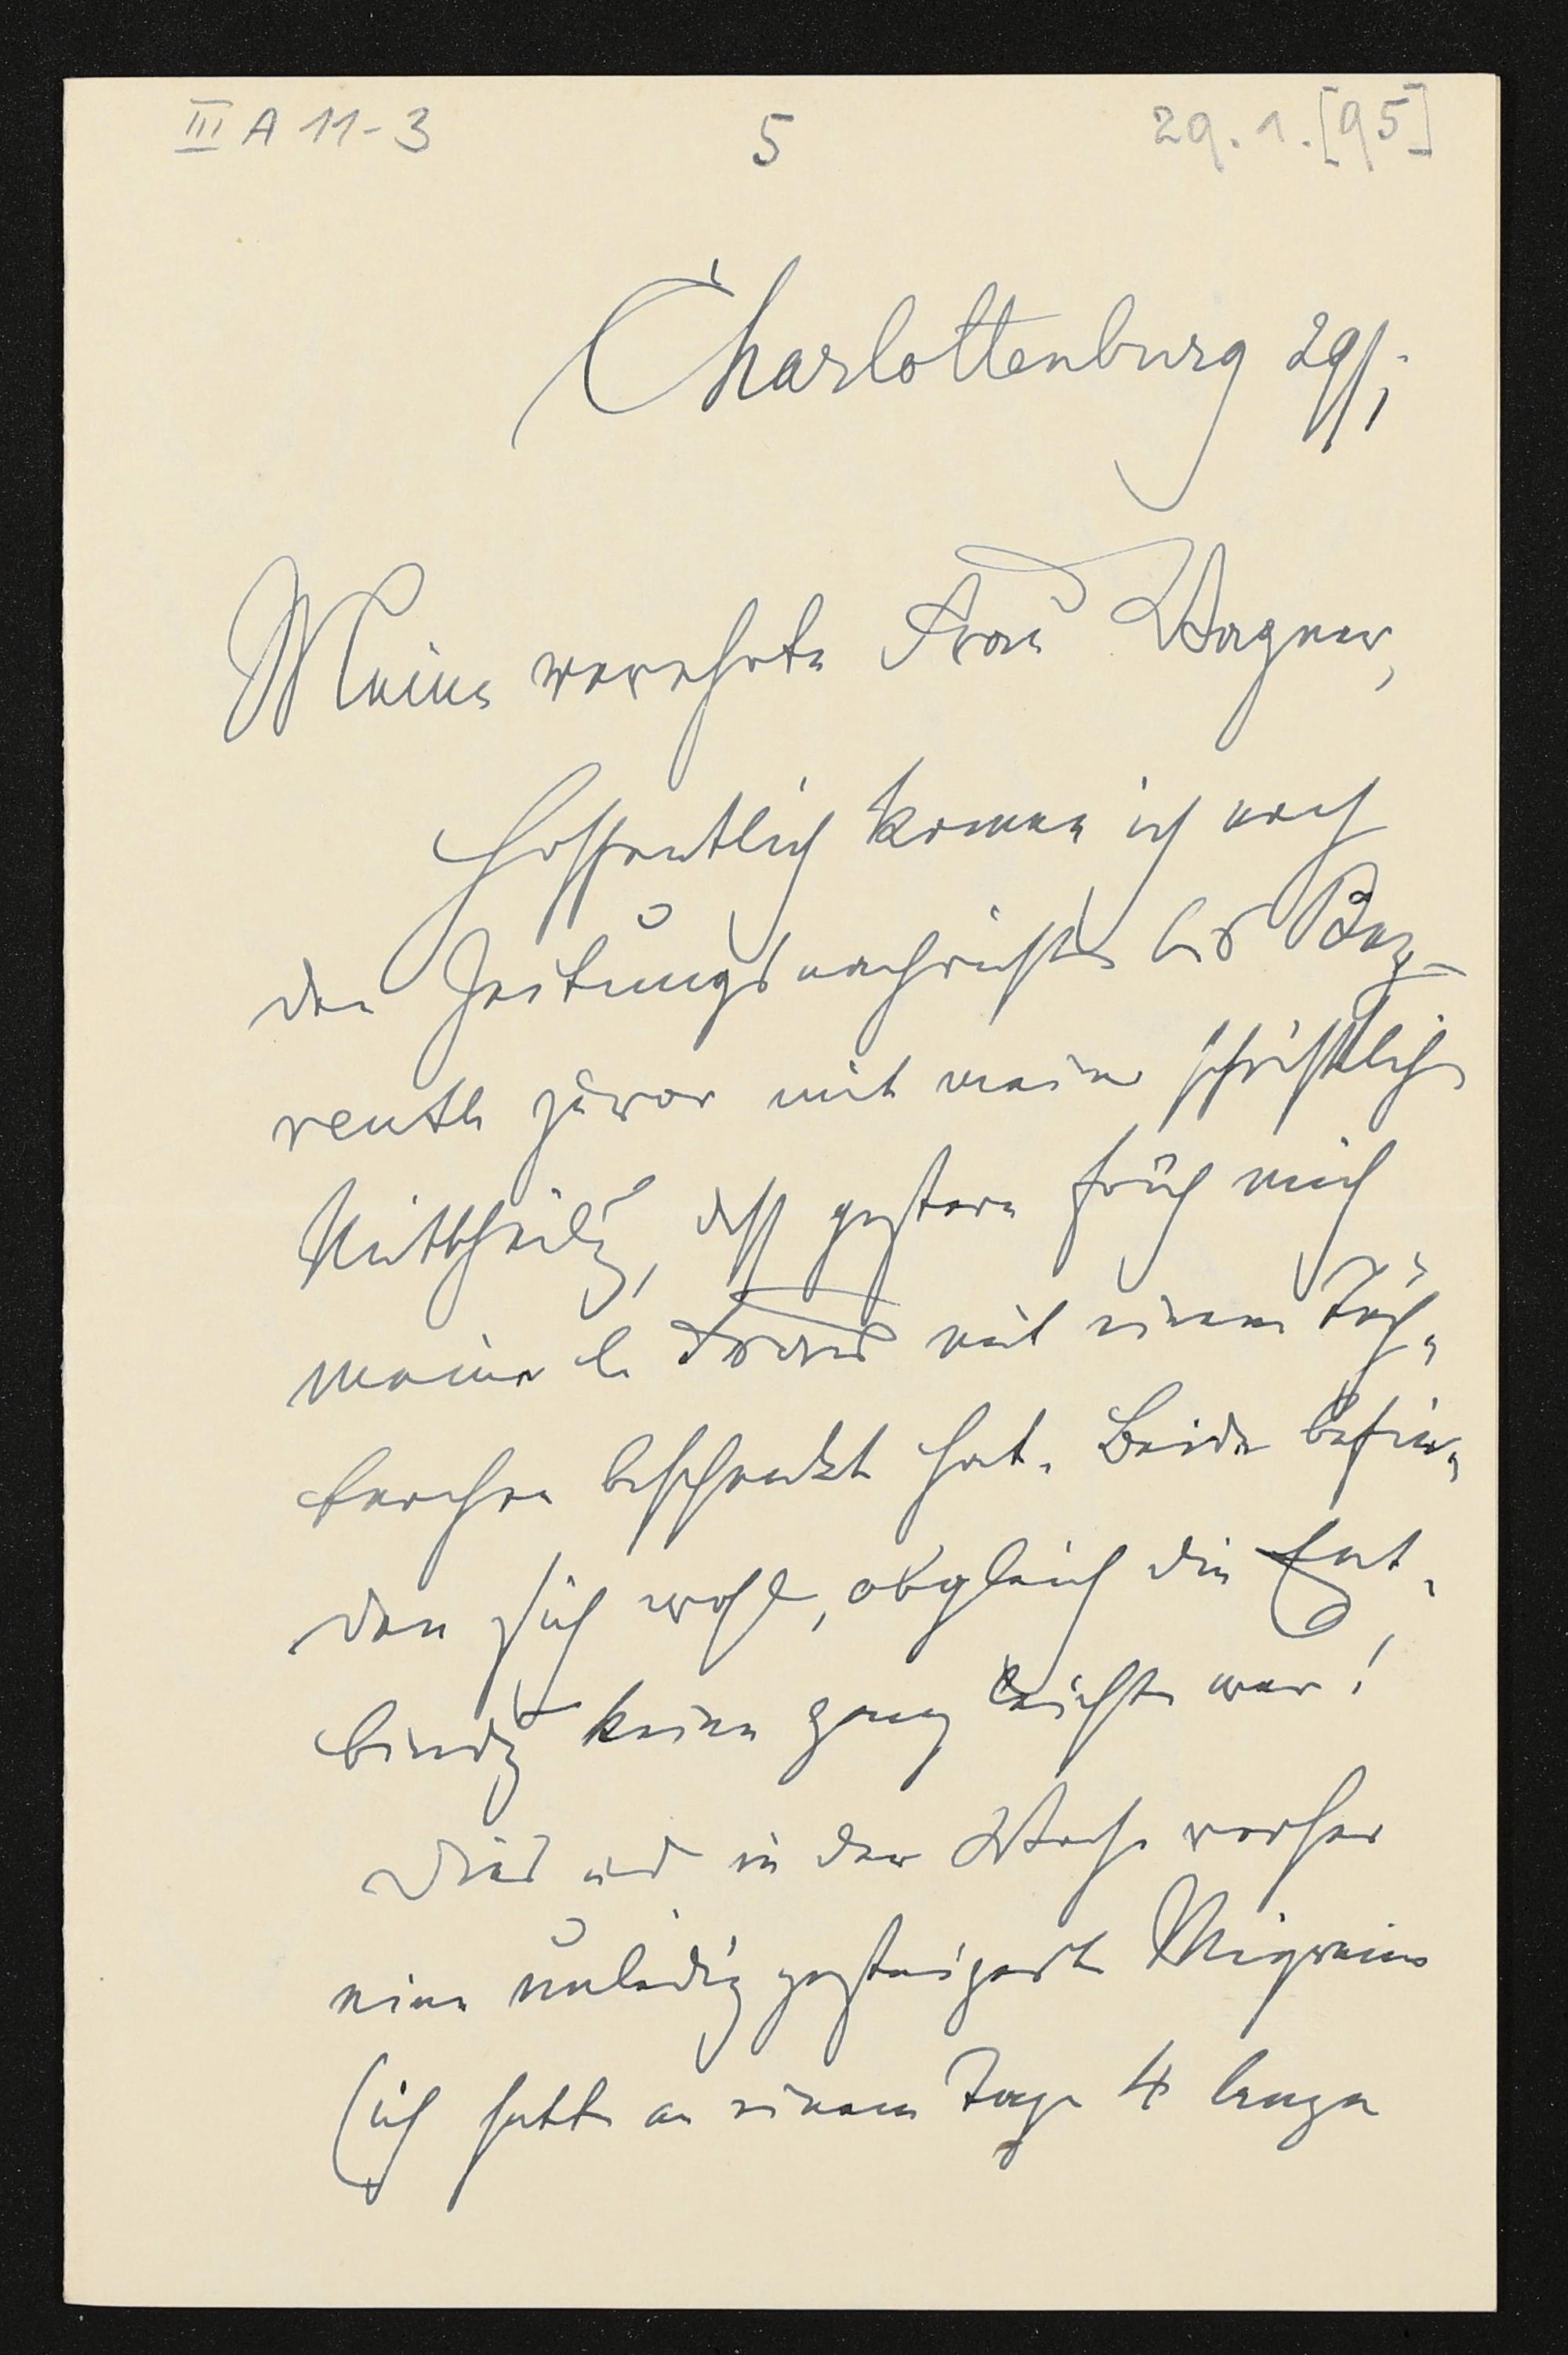 III A 11-3 5 29.1.[95]
Charlottenburg 29/1
Meine verehrte Frau Wagner,
Hoffentlich komme ich noch
den Zeitungsnachrichten bis Bay-
reuth zuvor mit meiner schriftlichen
Mittheilg, dass gestern früh mich
meine l. Frau mit einem Töch-
terchen beschenkt hat. Beide befin-
den sich wohl, obgleich die Ent-
bindg keine ganz leichte war!
Dies und in der Woche vorher
eine unleidig gesteigerte Migraine
(ich hatte an einem Tage 4 lange